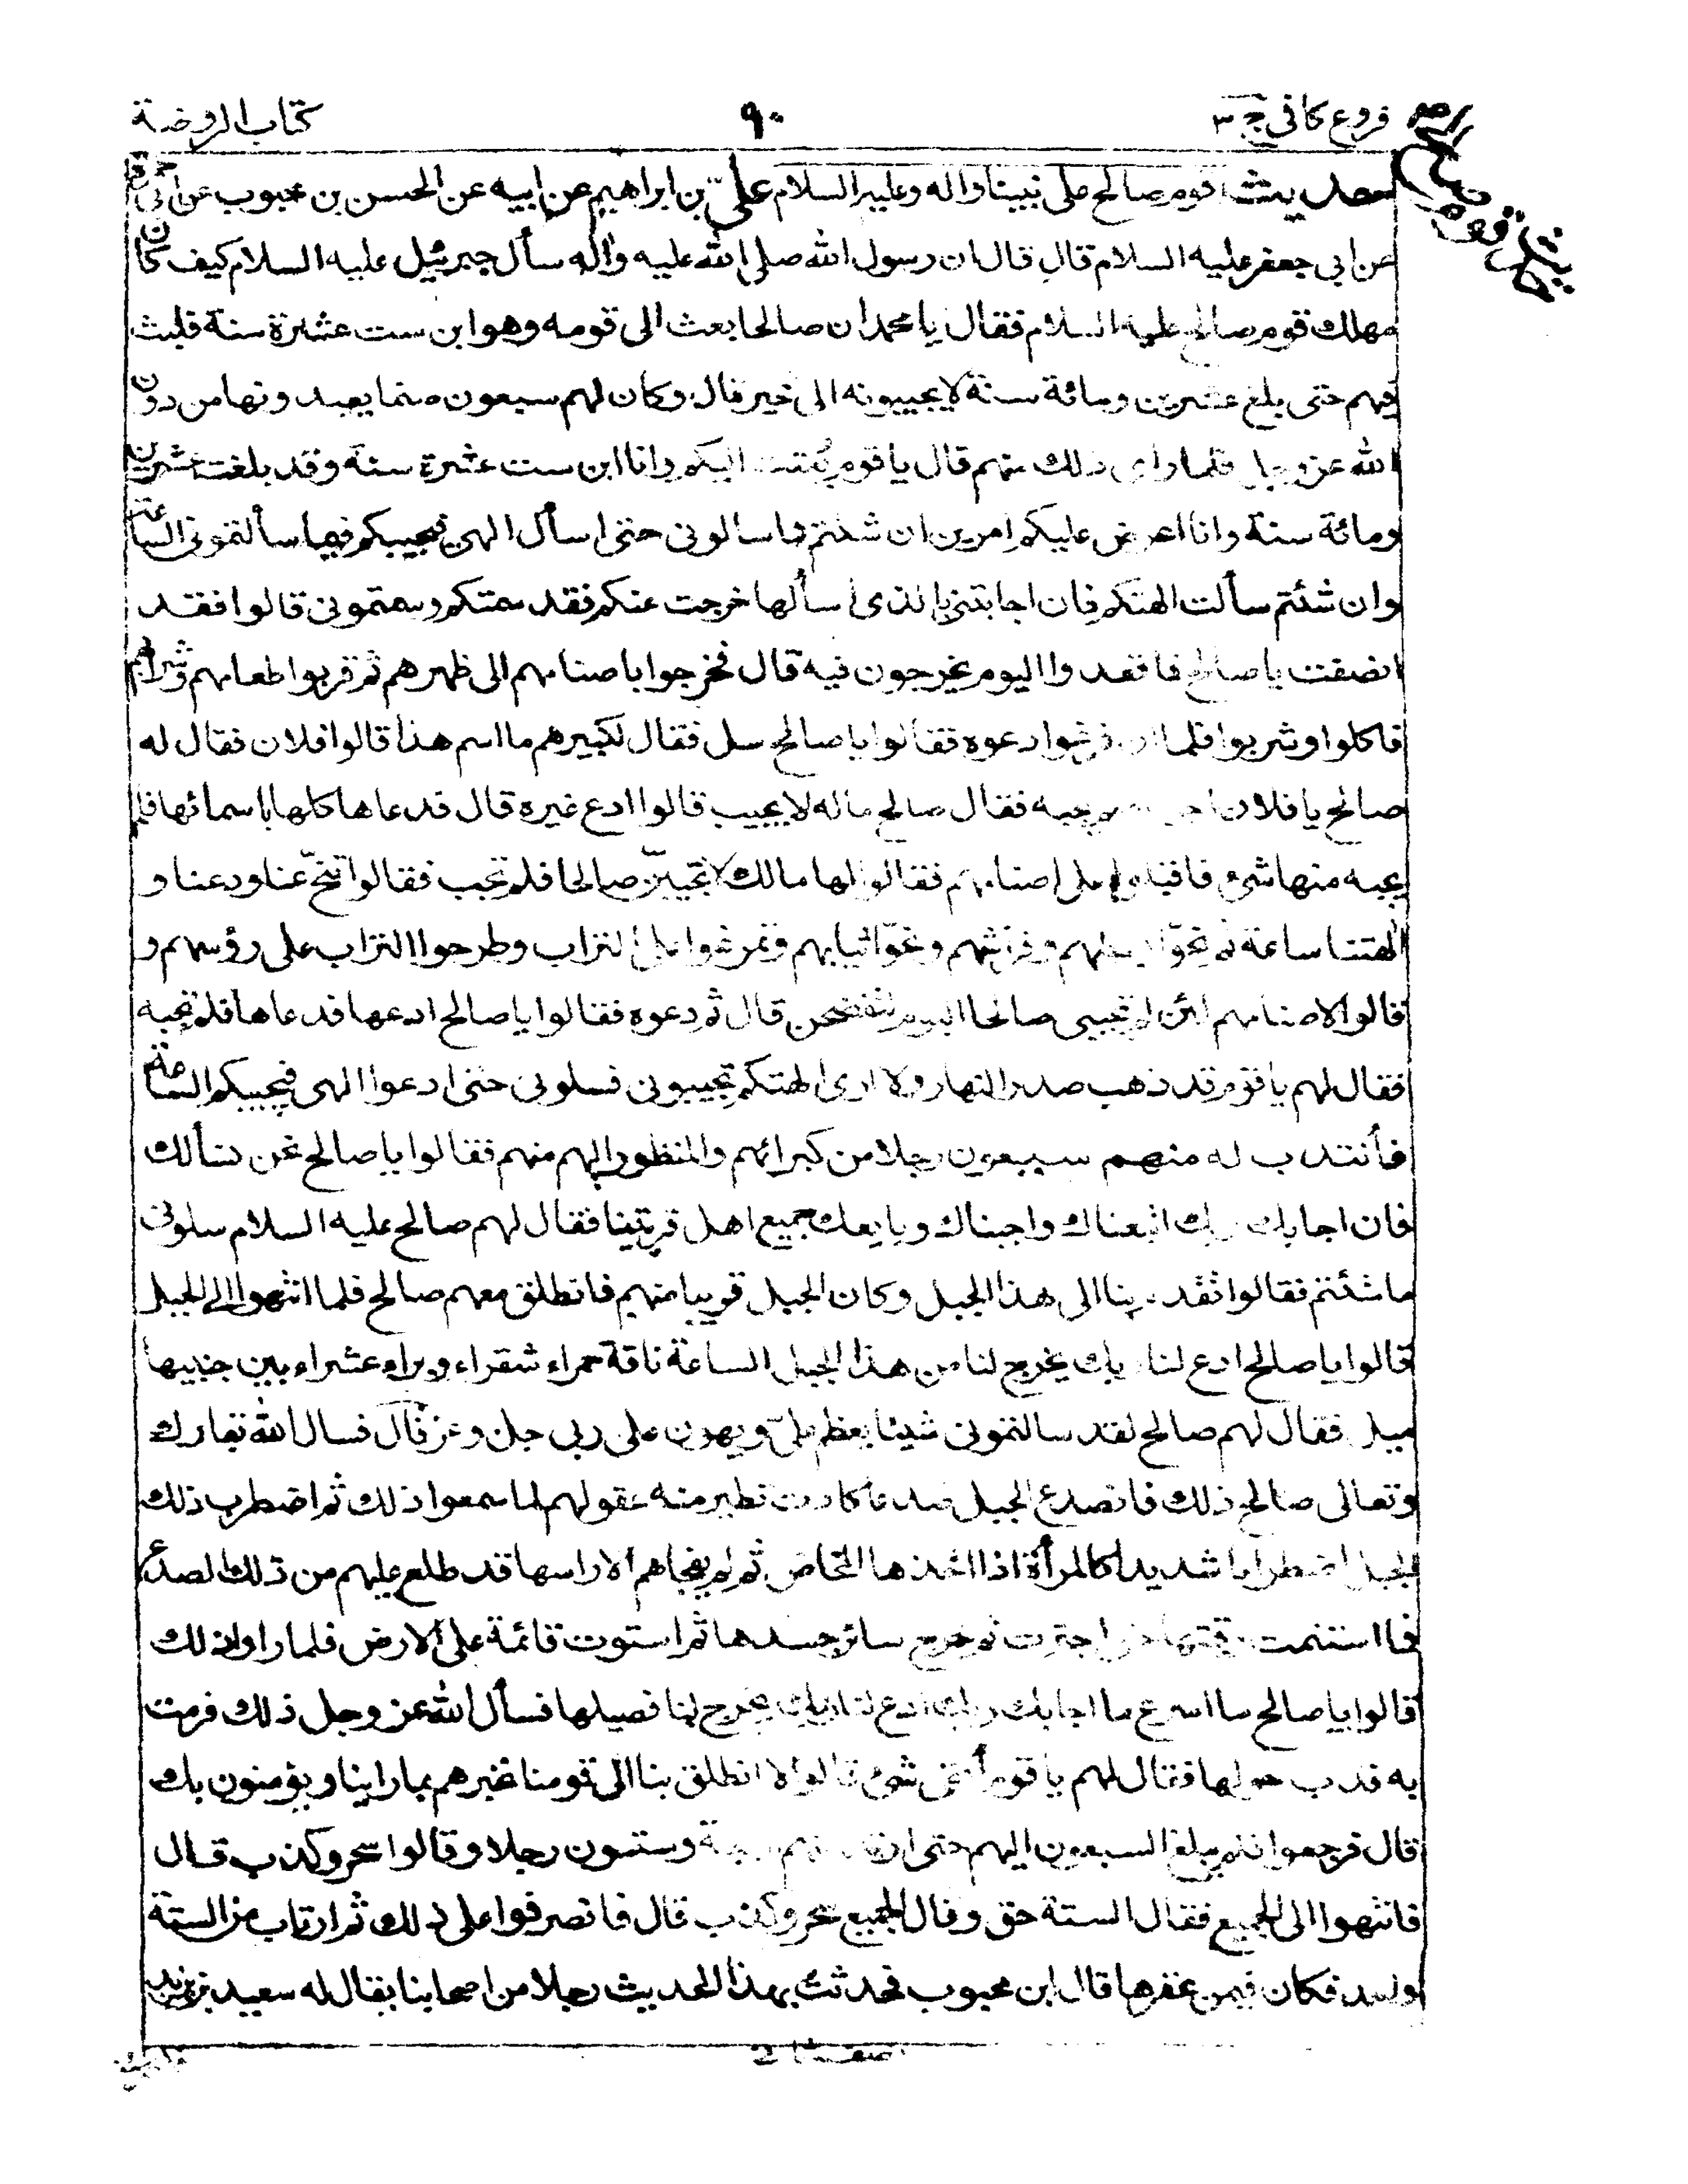 فروع كافي ج ٣
٩٠
كتاب الروضة
حديث قوم صالح على نبينا واله وعليه السلام علي بن ابراهيم عن ابيه عن الحسن بن محبوب عن ابي حمزة
عن ابي جعفر عليه السلام قال قال ان رسول الله صلى الله عليه واله سأل جبرئيل عليه السلام كيف كان
مهلك قوم صالح عليه السلام فقال يا محمد ان صالحا بعث الى قومه وهو ابن ست عشرة سنة فلبث
فيهم حتى بلغ عشرين ومائة سنة لا يجيبونه الى خير قال وكان لهم سبعون صنما يعبدونها من دون
الله عز وجل فلما راى ذلك منهم قال يا قوم بعثت اليكم وانا ابن ست عشرة سنة وقد بلغت عشرين
ومائة سنة وانا اعرض عليكم امرين ان شئتم فاسالوني حتى اسأل الهي فيجيبكم فيما سألتموني الساعة
وان شئتم سألت الهتكم فان اجابتني بالذي اسألها خرجت عنكم فقد سئمتكم وسئمتموني قالوا فقد
انصفت يا صالح فاتعدوا اليوم يخرجون فيه قال فخرجوا باصنامهم الى ظهرهم ثم قربوا طعامهم وشرابهم
فاكلوا وشربوا فلما ان فرغوا دعوه فقالوا يا صالح سل فقال لكبيرهم ما اسم هذا قالوا فلان فقال له
صالح يا فلان اجب فلم يجبه فقال صالح ما له لا يجيب قالوا ادع غيره قال فدعاها كلها باسمائها فلم
يجبه منها شئ فاقبلوا على اصنامهم فقالوا لها مالك لا تجيبين صالحا فلم تجب فقالوا تنح عنا ودعنا و
الهتنا ساعة ثم نحوا بسطهم وفرشهم ونحوا ثيابهم وتمرغوا على التراب وطرحوا التراب على رؤسهم و
قالوا لاصنامهم لئن لم تجيبي صالحا اليوم لتفضحن قال ثم دعوه فقالوا يا صالح ادعها فدعاها فلم تجبه
فقال لهم يا قوم قد ذهب صدر النهار ولا ارى الهتكم تجيبوني فسلوني حتى ادعوا الهي فيجيبكم الساعة
فأنتدب له منهم سبعون رجلا من كبرائهم والمنظور اليهم منهم فقالوا يا صالح نحن نسألك
فان اجابك ربك اتبعناك واجبناك وبايعك جميع اهل قريتنا فقال لهم صالح عليه السلام سلوني
ما شئتم فقالوا تقدم بنا الى هذا الجبل وكان الجبل قريبا منهم فانطلق معهم صالح فلما انتهوا الى الجبل
قالوا يا صالح ادع لنا ربك يخرج لنا من هذا الجبل الساعة ناقة حمراء شقراء وبراء عشراء بين جنبيها
ميل فقال لهم صالح لقد سالتموني شيئا يعظم علي ويهون على ربي جل وعز قال فسال الله تبارك
وتعالى صالح ذلك فانصدع الجبل صدعا كادت تطير منه عقولهم لما سمعوا ذلك ثم اضطرب ذلك
الجبل اضطرابا شديدا كالمرأة اذا اخذها المخاض ثم لم يفجاهم الا راسها قد طلع عليهم من ذلك الصدع
فما استتمت رقبتها حتى اجترت ثم خرج سائر جسدها ثم استوت قائمة على الارض فلما راوا ذلك
قالوا يا صالح ما اسرع ما اجابك ربك ادع لنا ربك يخرج لنا فصيلها فسأل الله عز وجل ذلك فرمت
به فدب حولها فقال لهم يا قوم أبقى شئ قالوا لا انطلق بنا الى قومنا نخبرهم بما راينا ويؤمنون بك
قال فرجعوا فلم يبلغ السبعون اليهم حتى ارتد منهم اربعة وستون رجلا وقالوا سحر وكذب قال
فانتهوا الى الجميع فقال الستة حق وقال الجميع سحر وكذب قال فانصرفوا على ذلك ثم ارتاب من الستة
واحد فكان فيمن عقرها قال ابن محبوب فحدثت بهذا الحديث رجلا من اصحابنا يقال له سعيد بن يزيد